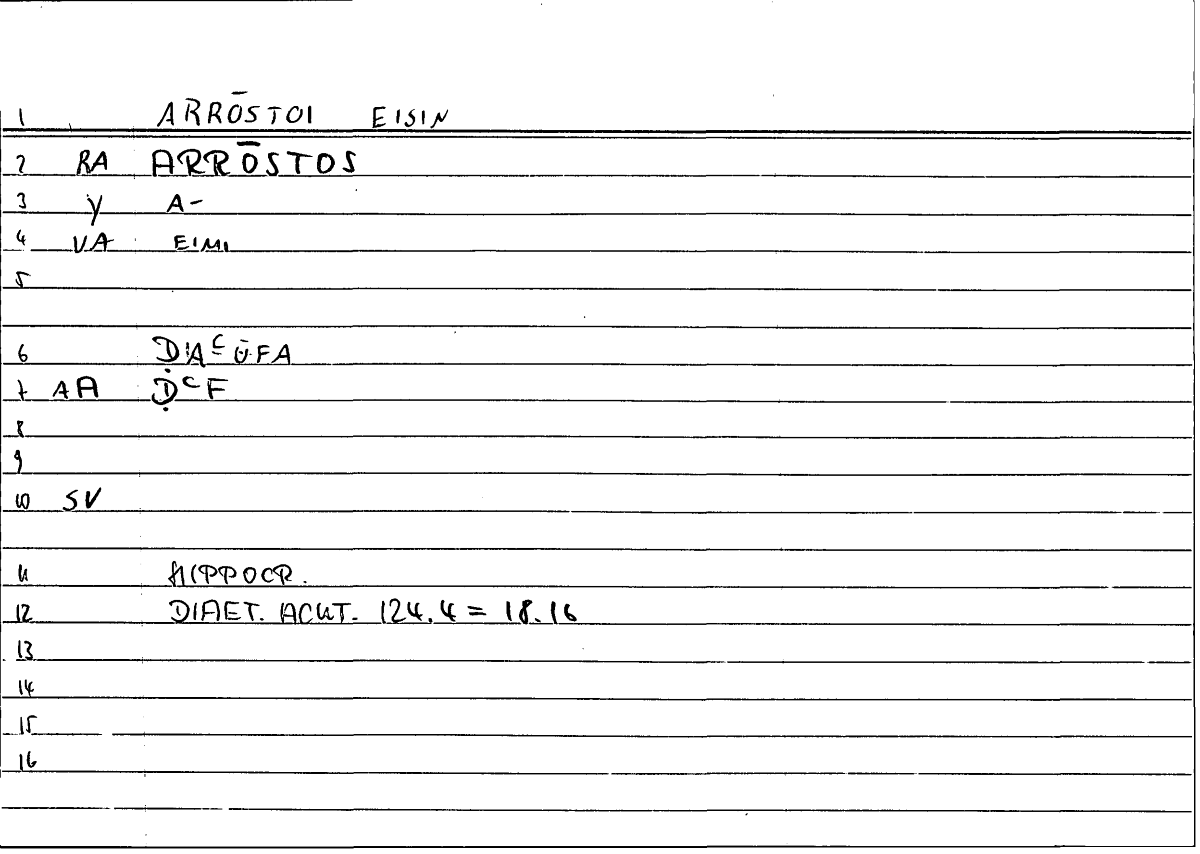 1 ARRŌSTOI EISIN
2 RA ARRŌSTOS
3 Y A-
4 VA EIMI
5
6 ḌAʿŪFA
7 AA ḌʿF
8
9
10 SV
11 HIPPOCR.
12 DIAET. ACUT. 124.4 = 18.16
13
14
15
16